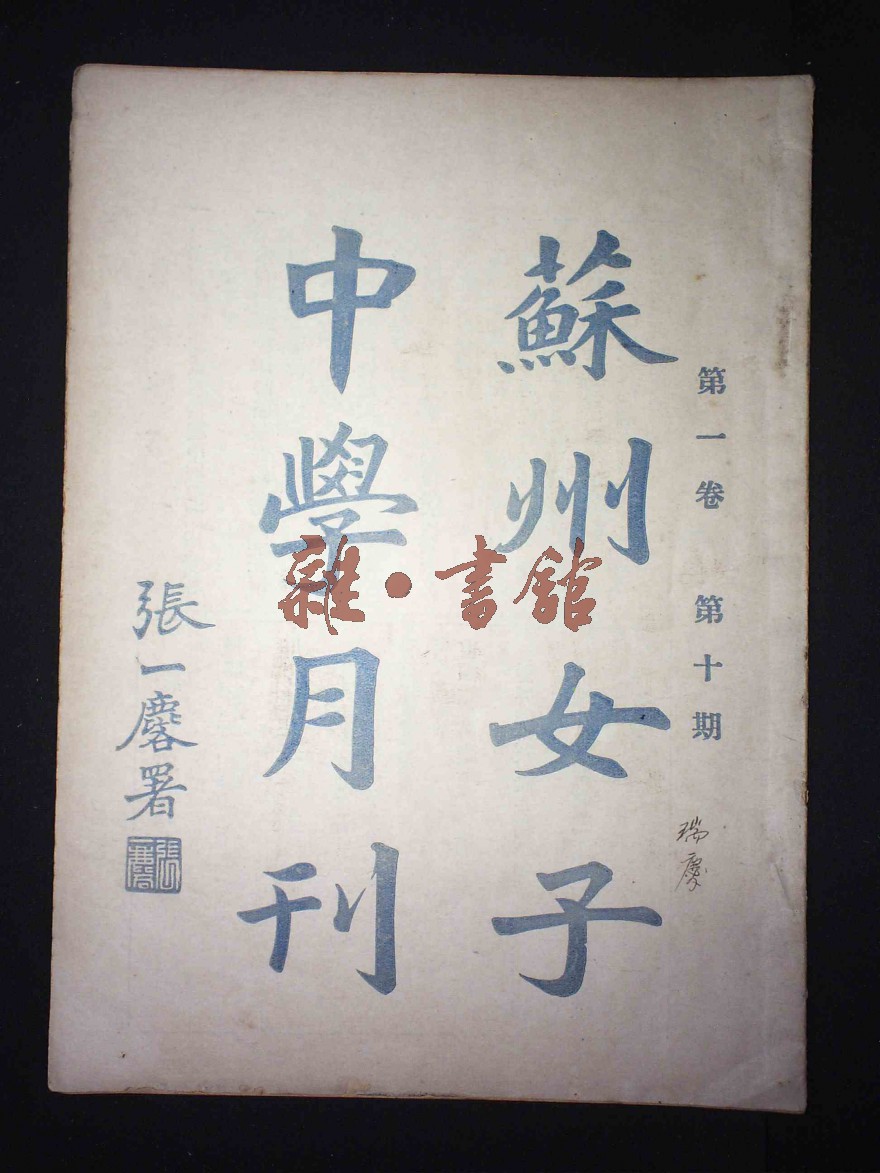 第一卷 第十期
蘇州女子
中學月刊
張一麐署
張一麐
瑞慶
雜·書館